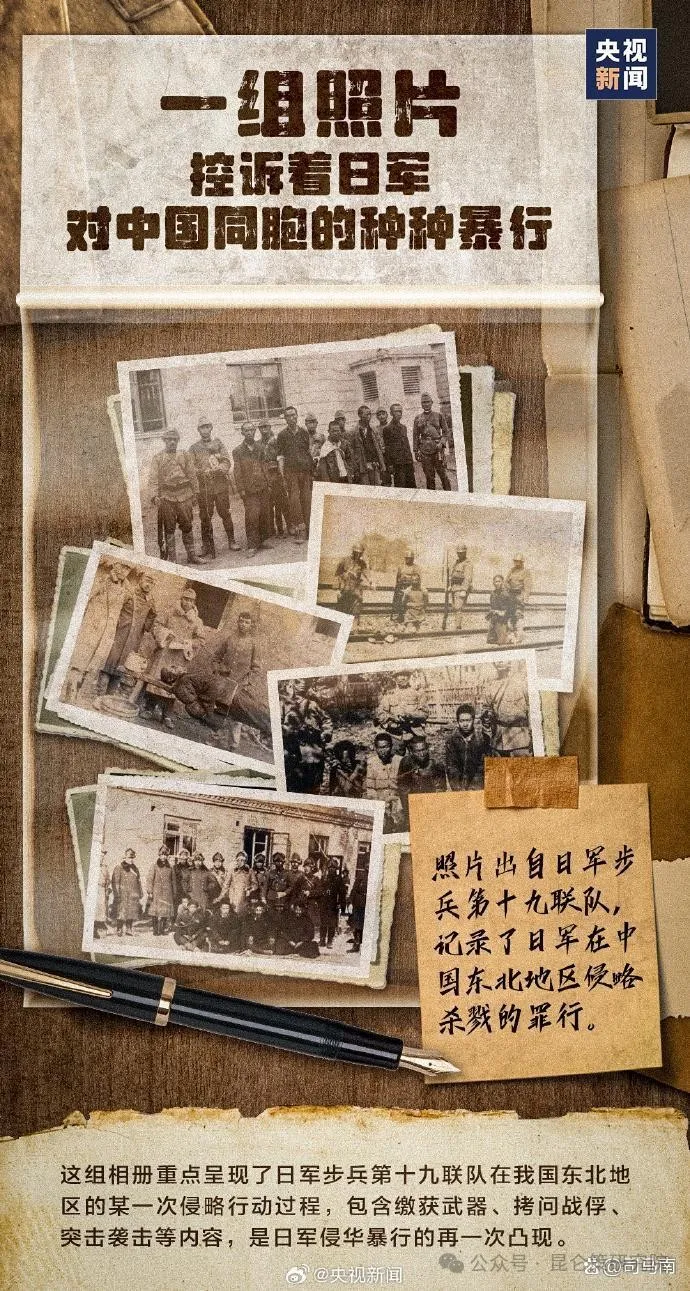 央视
新闻
一组照片
控诉着日军
对中国同胞的种种暴行
照片出自日军步
兵第十九联队，
记录了日军在中
国东北地区侵略
杀戮的罪行。
这组相册重点呈现了日军步兵第十九联队在我国东北地
区的某一次侵略行动过程，包含缴获武器、拷问战俘、
突击袭击等内容，是日军侵华暴行的再一次凸现。
公众号·昆仑策研究院
@央视新闻
@司马南